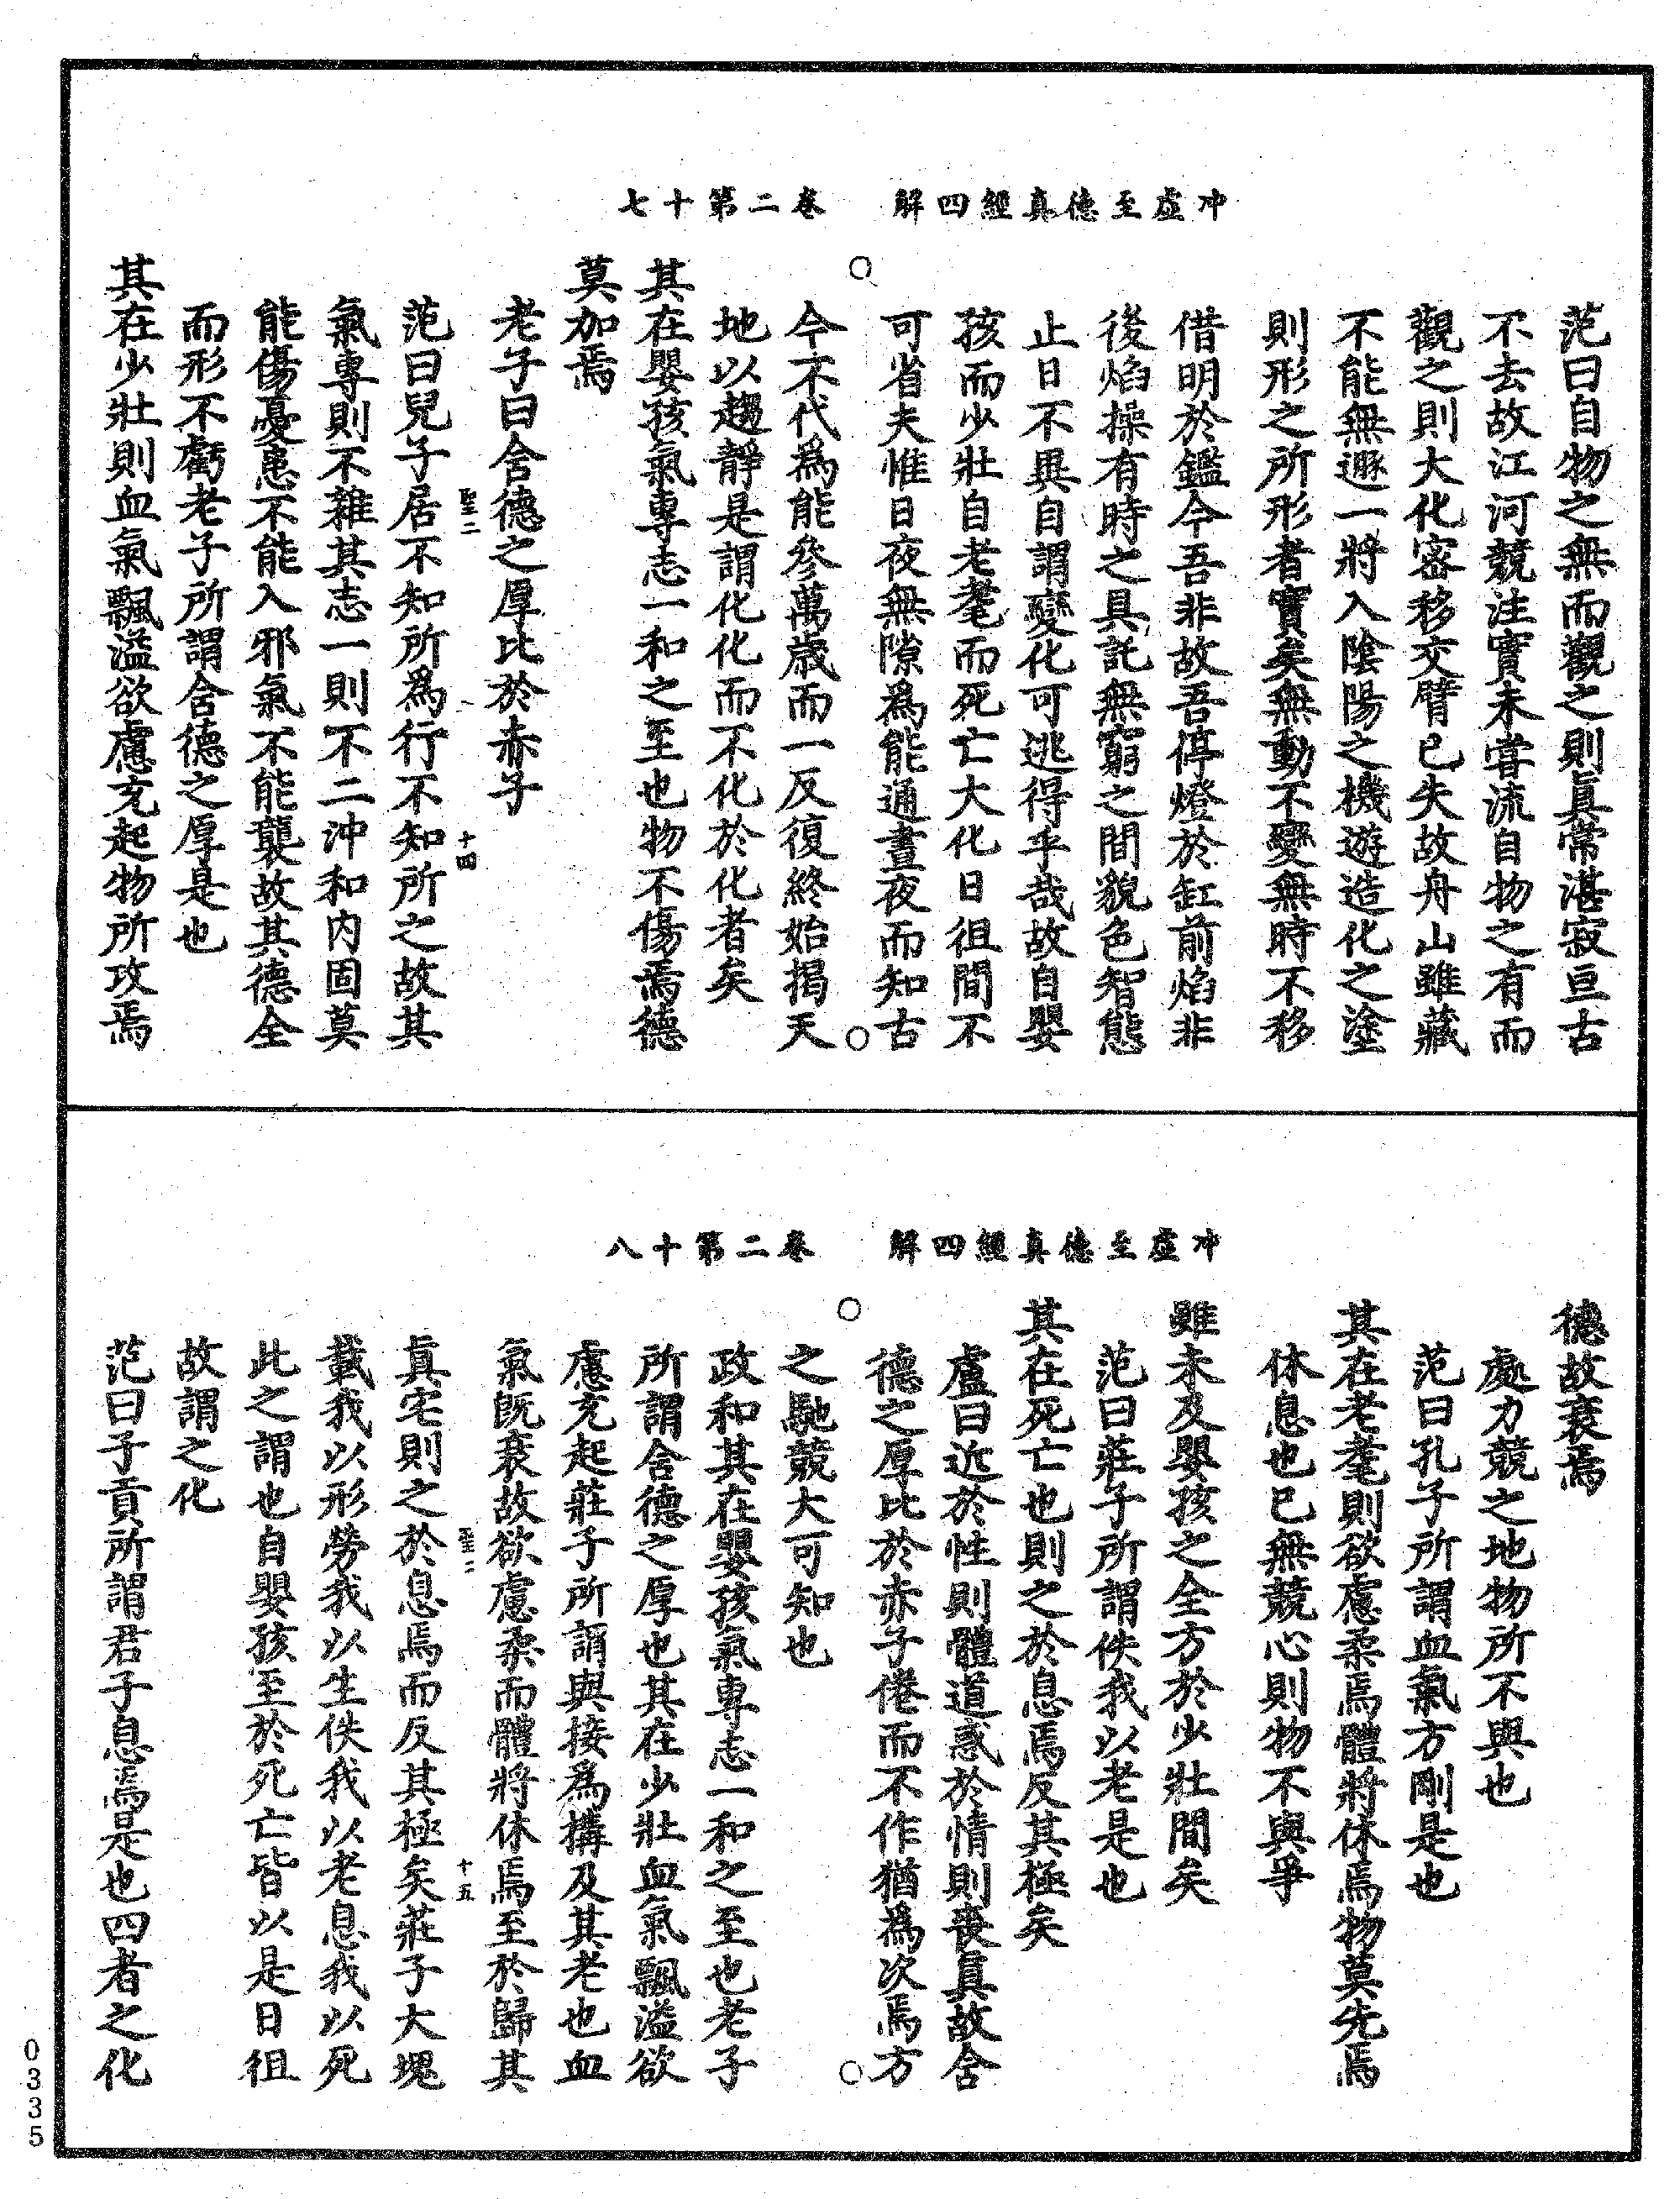 冲虛至德真經四解　卷二第十七
范曰自物之無而觀之則眞常湛寂亘古
不去故江河競注實未嘗流自物之有而
觀之則大化密移交臂已失故舟山雖藏
不能無遯一將入陰陽之機遊造化之塗
則形之所形者實矣無動不變無時不移
借明於鑑今吾非故吾停燈於缸前焰非
後焰操有時之具託無窮之間貌色智態
止日不異自謂變化可逃得乎哉故自嬰
孩而少壯自老耄而死亡大化日徂間不
可省夫惟日夜無隙爲能通晝夜而知古
今不代爲能參萬歲而一反復終始揭天
地以趨靜是謂化化而不化於化者矣
其在嬰孩氣專志一和之至也物不傷焉德
莫加焉
老子曰含德之厚比於赤子
范曰兒子居不知所爲行不知所之故其
至二
十四
氣專則不雜其志一則不二沖和内固莫
能傷憂患不能入邪氣不能襲故其德全
而形不虧老子所謂含德之厚是也
其在少壯則血氣飄溢欲慮充起物所攻焉
冲虛至德真經四解　卷二第十八
德故衰焉
處力競之地物所不與也
范曰孔子所謂血氣方剛是也
其在老耄則欲慮柔焉體將休焉物莫先焉
休息也已無競心則物不與爭
雖未及嬰孩之全方於少壯間矣
范曰莊子所謂佚我以老是也
其在死亡也則之於息焉反其極矣
盧曰近於性則體道惑於情則喪眞故含
德之厚比於赤子倦而不作猶爲次焉方
之馳競大可知也
政和其在嬰孩氣專志一和之至也老子
所謂含德之厚也其在少壯血氣飄溢欲
慮充起莊子所謂與接爲搆及其老也血
氣旣衰故欲慮柔而體將休焉至於歸其
至二
十五
眞宅則之於息焉而反其極矣莊子大塊
載我以形勞我以生佚我以老息我以死
此之謂也自嬰孩至於死亡皆以是日徂
故謂之化
范曰子貢所謂君子息焉是也四者之化
0335